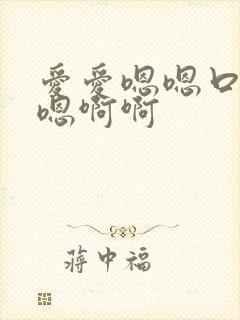 愛愛嗯嗯口
嗯啊啊
蒋中福